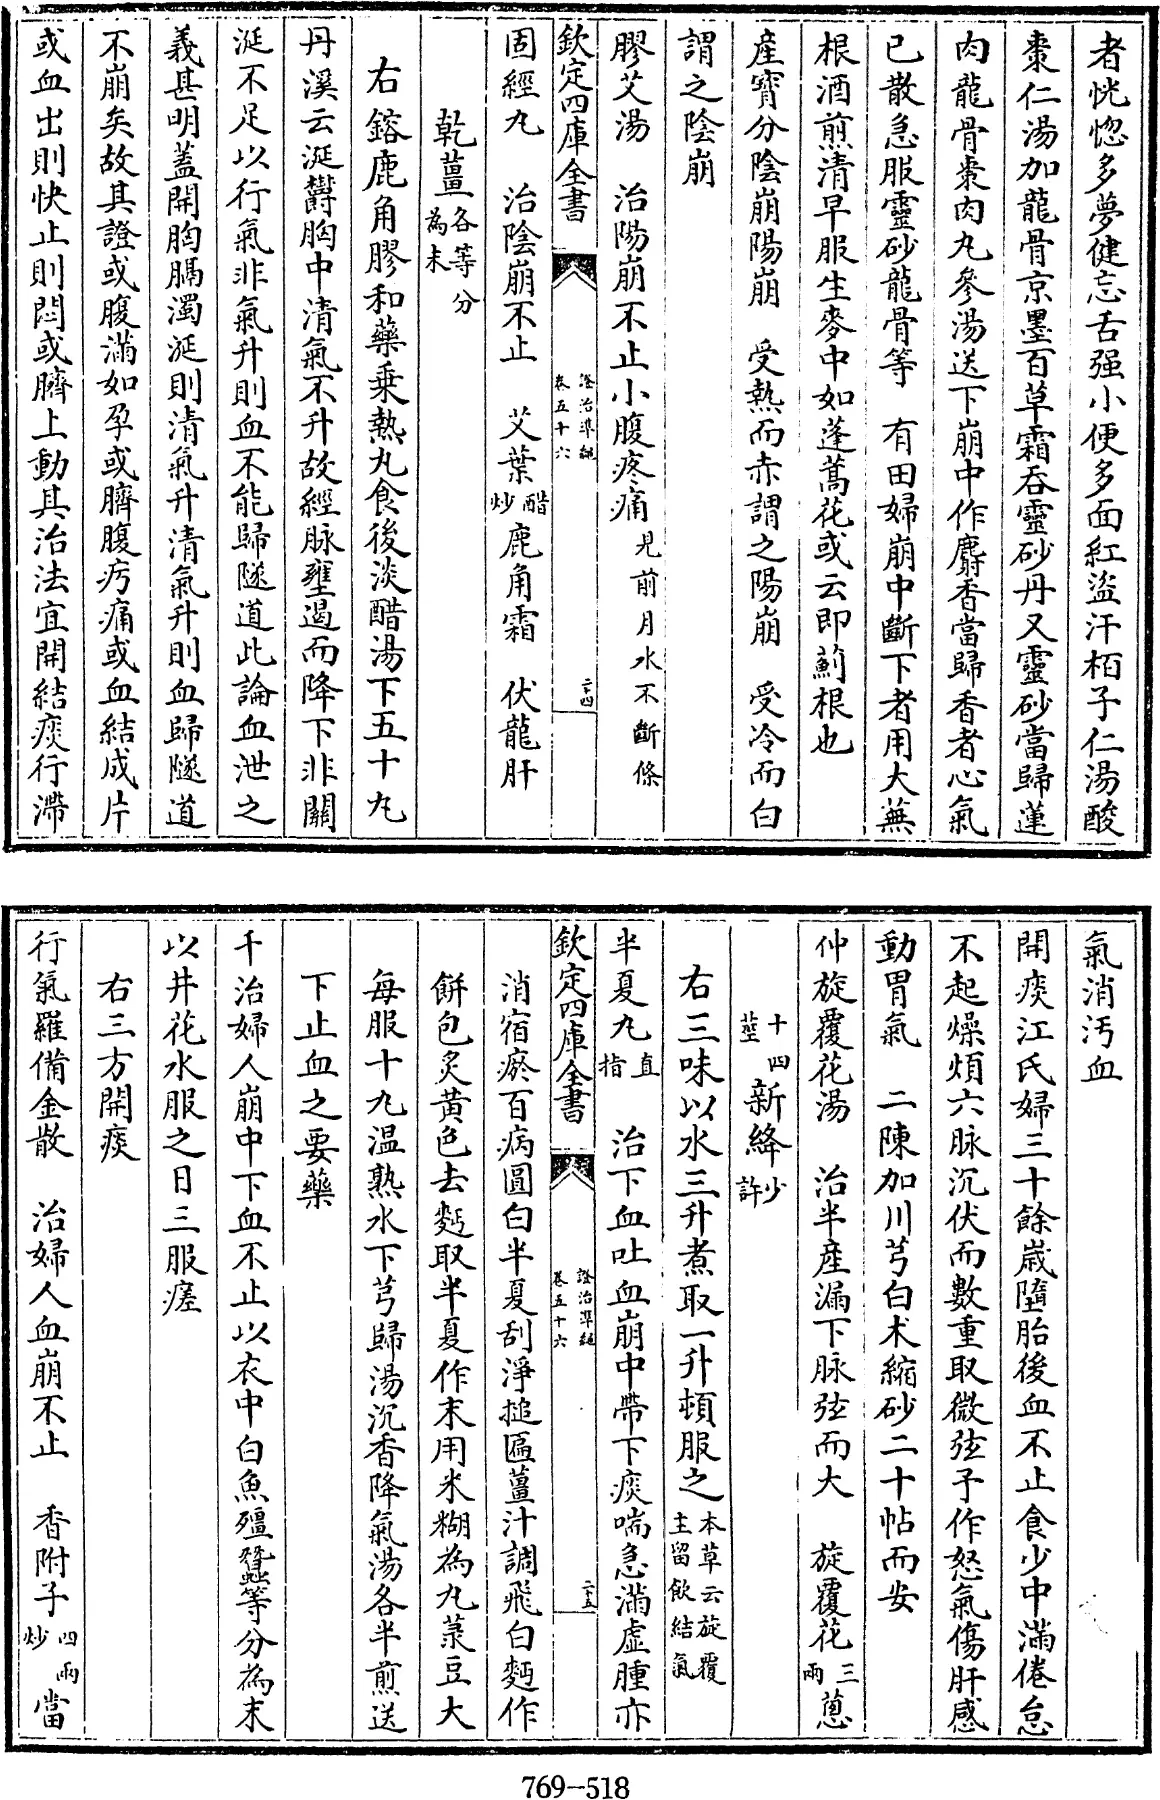 者恍惚多夢健忘舌强小便多面紅盜汗栢子仁湯酸
棗仁湯加龍骨京墨百草霜吞靈砂丹又靈砂當歸蓮
肉龍骨棗肉丸參湯送下崩中作麝香當歸香者心氣
已散急服靈砂龍骨等　有田婦崩中斷下者用大蕪
根酒煎清早服生麥中如蓬蒿花或云即薊根也
産寳分陰崩陽崩　受熱而赤謂之陽崩　受冷而白
謂之陰崩
膠艾湯　治陽崩不止小腹疼痛見前月水不斷條
欽定四庫全書　證治凖繩　卷五十六　二十四
固經丸　治陰崩不止　艾葉醋炒鹿角霜　伏龍肝
乾薑各等分為末
右鎔鹿角膠和藥乗熱丸食後淡醋湯下五十丸
丹溪云涎欝胸中清氣不升故經脉壅遏而降下非關
涎不足以行氣非氣升則血不能歸隧道此論血泄之
義甚明蓋開胸膈濁涎則清氣升清氣升則血歸隧道
不崩矣故其證或腹滿如孕或臍腹㽲痛或血結成片
或血出則快止則悶或臍上動其治法宜開結痰行滯
氣消汚血
開痰江氏婦三十餘嵗墮胎後血不止食少中滿倦怠
不起燥煩六脉沉伏而數重取微弦予作怒氣傷肝感
動胃氣　二陳加川芎白术縮砂二十帖而安
仲旋覆花湯　治半産漏下脉弦而大　旋覆花三兩葱
十四莖新絳少許
右三味以水三升煮取一升頓服之本草云旋覆主留飲結氣
半夏丸直指　治下血吐血崩中帶下痰喘急滿虛腫亦
欽定四庫全書　證治凖繩　卷五十六　二十五
消宿瘀百病圓白半夏刮淨搥匾薑汁調飛白麪作
餅包炙黃色去麪取半夏作末用米糊為丸菉豆大
每服十丸温熟水下芎歸湯沉香降氣湯各半煎送
下止血之要藥
千治婦人崩中下血不止以衣中白魚殭蠶等分為末
以井花水服之日三服瘥
右三方開痰
行氣羅備金散　治婦人血崩不止　香附子四兩炒當
769-518